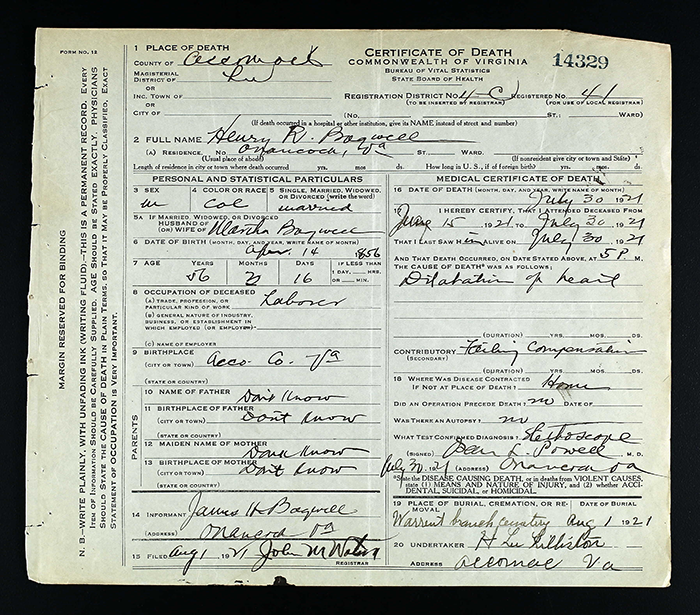 FORM NO. 12
1 PLACE OF DEATH
COUNTY OF Accomack
MAGISTERIAL DISTRICT OF Lee
OR
INC. TOWN OF
OR
CITY OF
CERTIFICATE OF DEATH
COMMONWEALTH OF VIRGINIA
BUREAU OF VITAL STATISTICS
STATE BOARD OF HEALTH
14329
REGISTRATION DISTRICT NO. 4-C REGISTERED NO. 41
(TO BE INSERTED BY REGISTRAR) (FOR USE OF LOCAL REGISTRAR)
(No. ST.; WARD)
(If death occurred in a hospital or other institution, give its NAME instead of street and number)
2 FULL NAME Henry R. Bagwell
(A) RESIDENCE No. Onancock, Va ST. WARD.
(Usual place of abode) (If nonresident give city or town and State)
Length of residence in city or town where death occurred yrs. mos. ds. How long in U. S., if of foreign birth? yrs. mos. ds.
PERSONAL AND STATISTICAL PARTICULARS
3 SEX m
4 COLOR OR RACE col
5 SINGLE, MARRIED, WIDOWED, OR DIVORCED (write the word) married
5A IF MARRIED, WIDOWED, OR DIVORCED
HUSBAND OF
(OR) WIFE OF Martha Bagwell
6 DATE OF BIRTH (MONTH, DAY, AND YEAR, WRITE NAME OF MONTH)
Apr. 14 1856
7 AGE YEARS MONTHS DAYS IF LESS THAN 1 DAY, HRS. OR MIN.
56 3 16
8 OCCUPATION OF DECEASED
(A) TRADE, PROFESSION, OR PARTICULAR KIND OF WORK Laborer
(B) GENERAL NATURE OF INDUSTRY, BUSINESS, OR ESTABLISHMENT IN WHICH EMPLOYED (OR EMPLOYER)
(C) NAME OF EMPLOYER
9 BIRTHPLACE
(CITY OR TOWN) Acco. Co. Va
(STATE OR COUNTRY)
PARENTS
10 NAME OF FATHER Dont Know
11 BIRTHPLACE OF FATHER
(CITY OR TOWN) Dont Know
(STATE OR COUNTRY)
12 MAIDEN NAME OF MOTHER Dont Know
13 BIRTHPLACE OF MOTHER
(CITY OR TOWN) Dont Know
(STATE OR COUNTRY)
14 INFORMANT James H. Bagwell
(ADDRESS) Onancock Va
15 FILED Aug 1 1921 John M Watson
REGISTRAR
MEDICAL CERTIFICATE OF DEATH
16 DATE OF DEATH (MONTH, DAY, AND YEAR, WRITE NAME OF MONTH)
July 30 1921
17 I HEREBY CERTIFY, THAT I ATTENDED DECEASED FROM
June 15 1921 TO July 30 1921
THAT I LAST SAW Him ALIVE ON July 30 1921
AND THAT DEATH OCCURRED, ON DATE STATED ABOVE, AT 5 P M.
THE CAUSE OF DEATH* WAS AS FOLLOWS:
Dilatation of heart
(DURATION) YRS. MOS. DS.
CONTRIBUTORY Failing Compensation
(SECONDARY)
(DURATION) YRS. MOS. DS.
18 WHERE WAS DISEASE CONTRACTED
IF NOT AT PLACE OF DEATH? Home
DID AN OPERATION PRECEDE DEATH? no DATE OF
WAS THERE AN AUTOPSY? no
WHAT TEST CONFIRMED DIAGNOSIS? Stethoscope
(SIGNED) L. Powell M. D.
July 30 1921 (ADDRESS) Onancock Va
*State the DISEASE CAUSING DEATH, or in deaths from VIOLENT CAUSES, state (1) MEANS AND NATURE OF INJURY, and (2) whether ACCIDENTAL, SUICIDAL, or HOMICIDAL.
19 PLACE OF BURIAL, CREMATION, OR REMOVAL DATE OF BURIAL
branch Aug 1 1921
20 UNDERTAKER H Lee Lilliston
ADDRESS Accomac Va
MARGIN RESERVED FOR BINDING
N. B.—WRITE PLAINLY, WITH UNFADING INK (WRITING FLUID),—THIS IS A PERMANENT RECORD. EVERY
ITEM OF INFORMATION SHOULD BE CAREFULLY SUPPLIED. AGE SHOULD BE STATED EXACTLY. PHYSICIANS
SHOULD STATE CAUSE OF DEATH IN PLAIN TERMS, SO THAT IT MAY BE PROPERLY CLASSIFIED. EXACT
STATEMENT OF OCCUPATION IS VERY IMPORTANT.